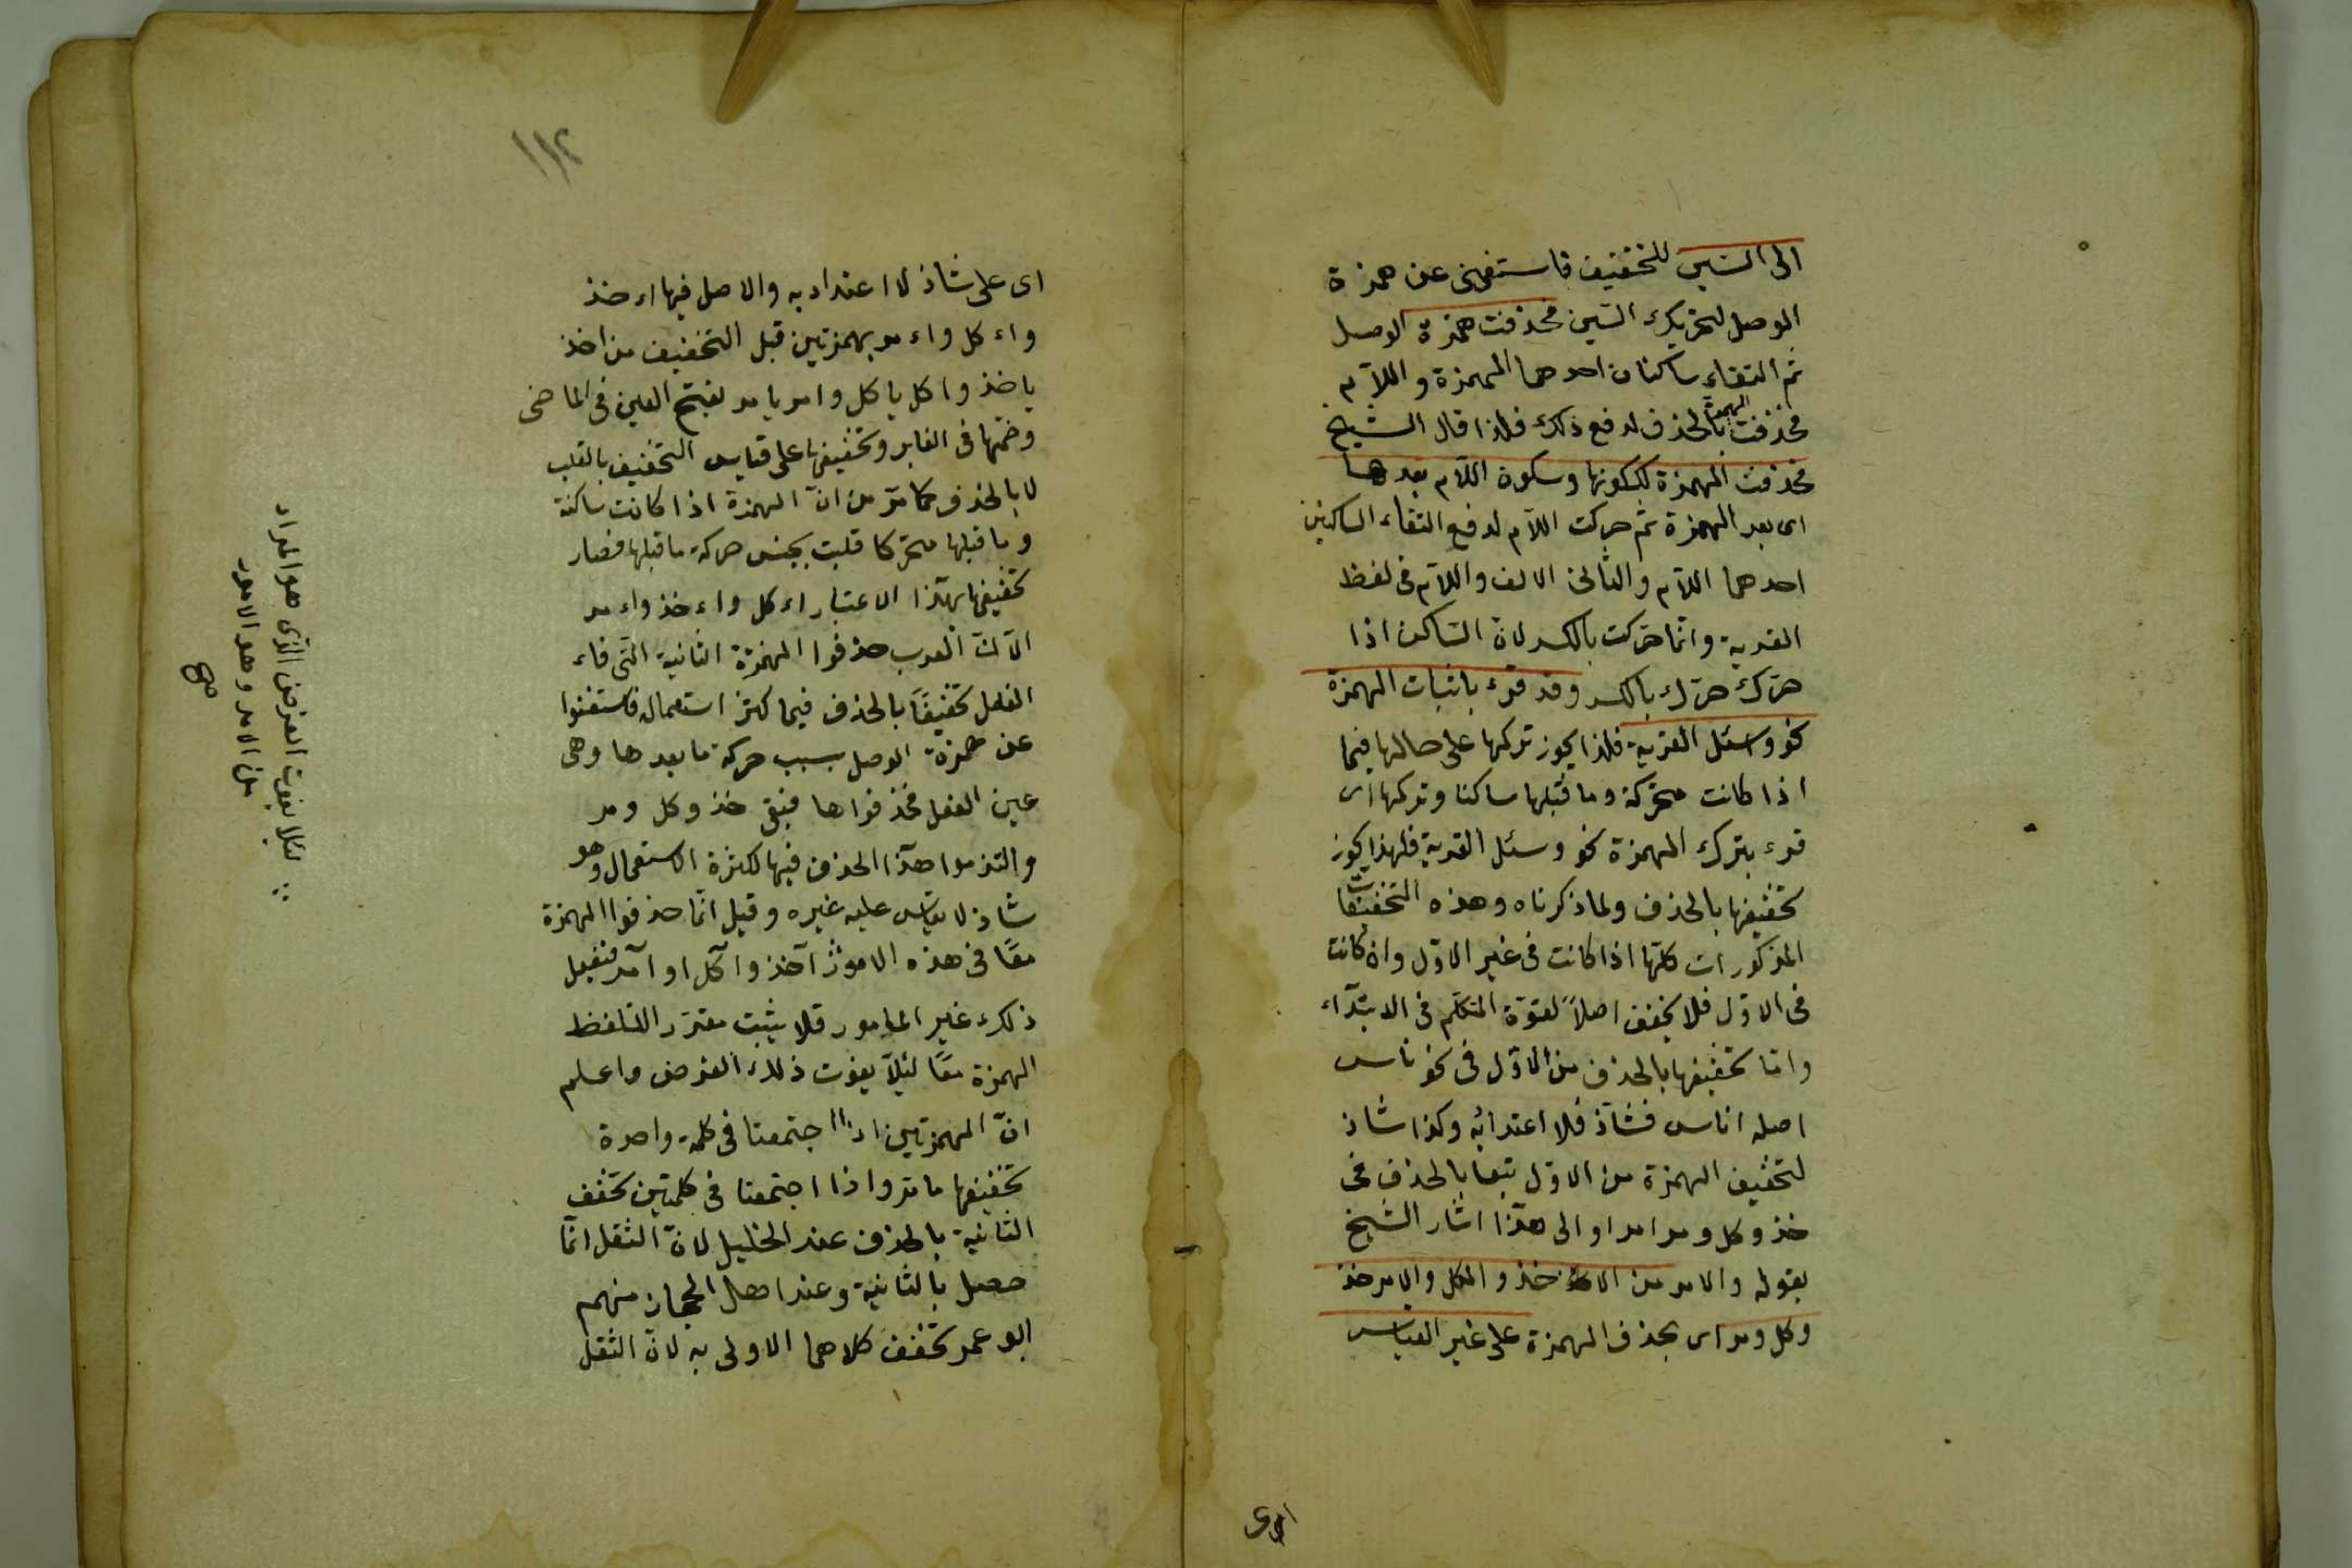 الى السين للتخفيف فاستغنى عن همزة
الوصل لتحريك السين فحذفت همزة الوصل
ثم التقاء ساكنان احدهما الهمزة واللام
فحذفت الهمزة بالحذف لدفع ذلك فلذا قال الشيخ
فحذفت الهمزة لسكونها وسكون اللام بعدها
اى بعد الهمزة ثم حركت اللام لدفع التقاء الساكنين
احدهما اللام والثانى الالف واللام فى لفظ
القرية وانما حركت بالكسر لان الساكن اذا
حرّك حرّك بالكسر وقد قرء باثبات الهمزة
نحو واسئل القرية فلذا يجوز تركها على حالها فيما
اذا كانت متحركة وما قبلها ساكنا وتركها اى
قرء بترك الهمزة نحو وسئل القرية فلهذا يجوز
تخفيفها بالحذف ولما ذكرناه وهذه التخفيفات
المذكورات كلّها اذا كانت فى غير الاوّل وان كانت
فى الاوّل فلا يخفف اصلاً لقوّة المتكلم فى الابتداء
وانما تخفيفها بالحذف من الاوّل فى نحو ناس
اصله اناس فشاذّ فلا اعتدا به وكذا شاذ
لتخفيف الهمزة من الاوّل تبعا بالحذف فى
خذ وكل ومر امرا والى هذا اشار الشيخ
بقوله والامر من الاخذ والاكل والامر خذ
وكل ومر اى بحذف الهمزة على غير القياس
اى
١١٢
اى على شاذ لا اعتداد به والاصل فيها اءخذ
واءكل واءمر بهمزتين قبل التخفيف من اخذ
ياخذ واكل ياكل وامر يامر بفتح العين فى الماضى
وضمها فى الغابر وتخفيفها على قياس التخفيف بالقلب
لا بالحذف كما مرّ من انّ الهمزة اذا كانت ساكنة
وما قبلها متحرّكا قلبت بجنس حركة ما قبلها فصار
تخفيفها بهذا الاعتبار اءكل واءخذ واءمر
الّا انّ العرب حذفوا الهمزة الثانية التى فاء
الفعل تخفيفًا بالحذف فيما كثر استعماله فاستغنوا
عن همزة الوصل بسبب حركة ما بعدها وهى
عين الفعل فحذفوها فبقى خذ وكل ومر
والتزموا هذا الحذف فيها لكثرة الاستعمال وهو
شاذ لا يقاس عليه غيره وقيل انما حذفوا الهمزة
معًا فى هذه الامور آخذ وآكل او آمر فنقيل
ذلك غير المامور فلا يثبت مقرّر التلفظ
الهمزة معًا لئلّا يفوت ذلك الغرض واعلم
انّ الهمزتين اذا اجتمعتا فى كلمة واحدة
تخفيفها ما مرّ واذا اجتمعتا فى كلمتين تخفف
الثانية بالحذف عند الخليل لانّ الثقل انّما
حصل بالثانية وعند اهل الحجاز منهم
ابو عمر تخفف كلاهما الاولى به لان الثقل
لئلا يفوت الغرض الذى هو المراد
من الامر وهو الامور